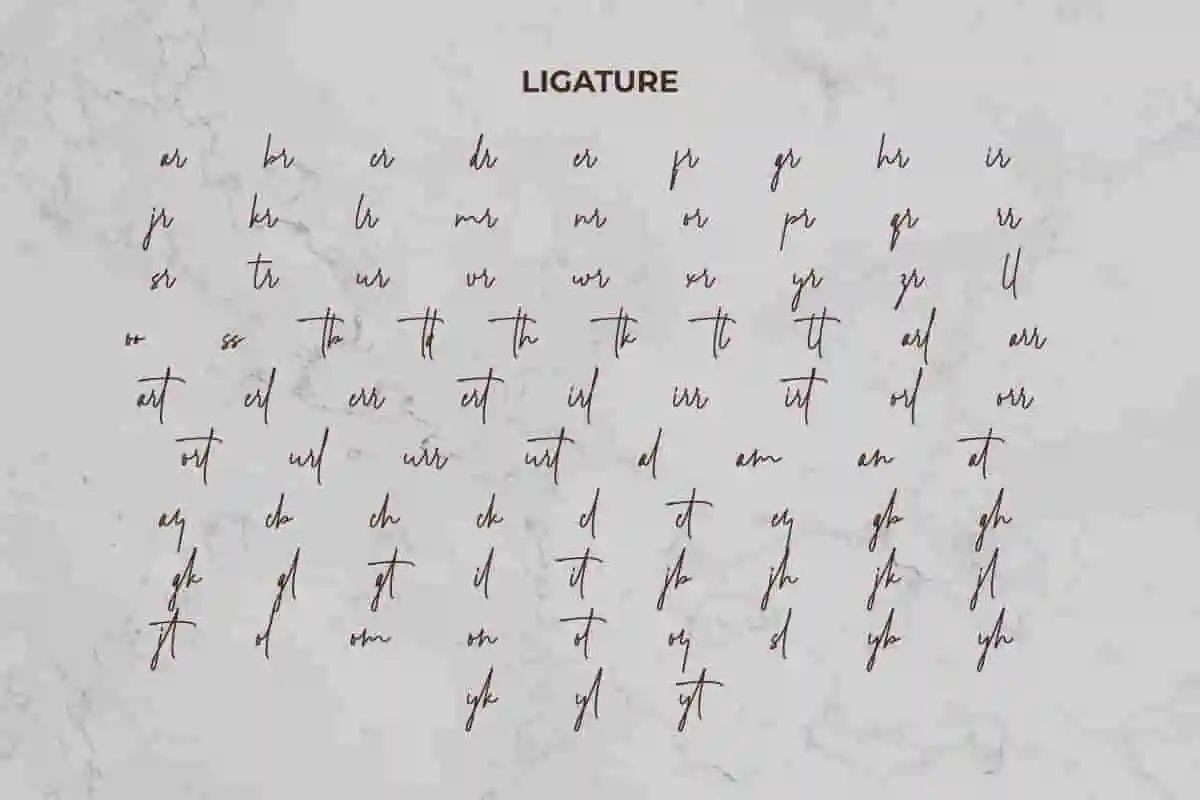 LIGATURE
ar br cr dr er fr gr hr ir
jr kr lr mr nr or pr qr rr
sr tr ur vr wr xr yr zr ll
oo ss tb td th tk tl tt arl arr
art erl err ert irl irr irt orl orr
ort url urr urt al am an at
ay cb ch ck cl ct ey gb gh
gk gl gt il it jb jh jk jl
jt ol om on ot oy sl yb yh
yk yl yt